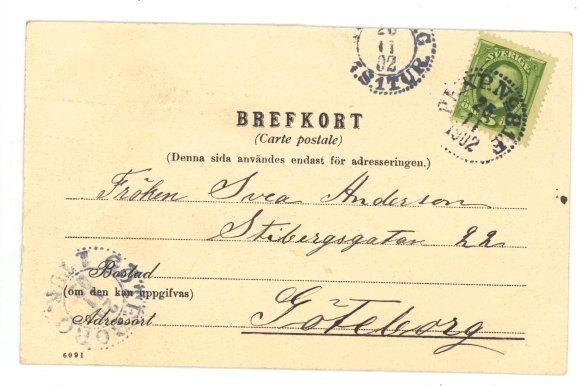 26
11
02
1.S1TUR.G
SVERIGE
PKXP.Nº81
1902
BREFKORT
(Carte postale)
(Denna sida användes endast för adresseringen.)
Fröken Svea Anderson
Stibergsgatan 22
Bostad
(om den kan uppgifvas)
Adressort
Göteborg
6091